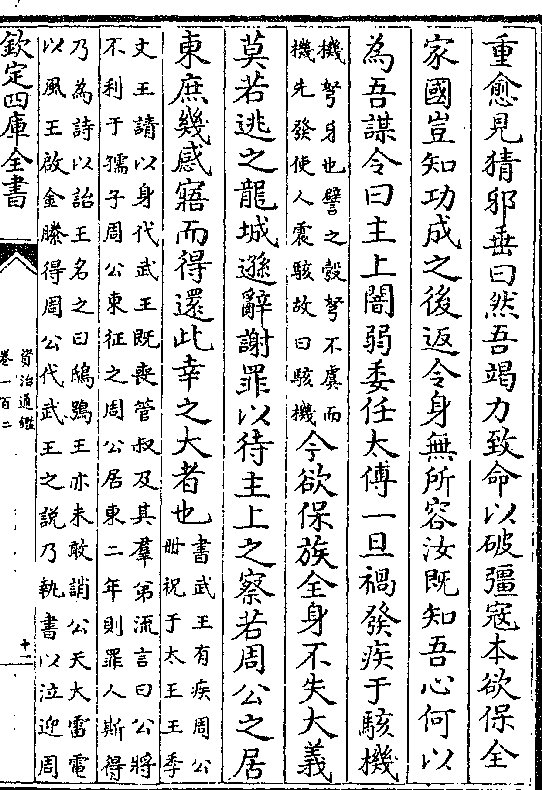 重愈見猜邪垂曰然吾竭力致命以破彊寇本欲保全
家國豈知功成之後返令身無所容汝既知吾心何以
為吾謀令曰主上闇弱委任太傅一旦禍發疾于駭機
機弩身也譬之彀弩不虞而
機先發使人震駭故曰駭機
今欲保族全身不失大義
莫若逃之龍城遜辭謝罪以待主上之察若周公之居
東庶幾感寤而得還此幸之大者也
書武王有疾周公
冊祝于太王王季
文王請以身代武王既喪管叔及其羣弟流言曰公將
不利于孺子周公東征之周公居東二年則罪人斯得
乃為詩以詒王名之曰鴟鴞王亦未敢誚公天大雷電
以風王啟金縢得周公代武王之說乃執書以泣迎周
欽定四庫全書
資治通鑑
卷一百二
十二